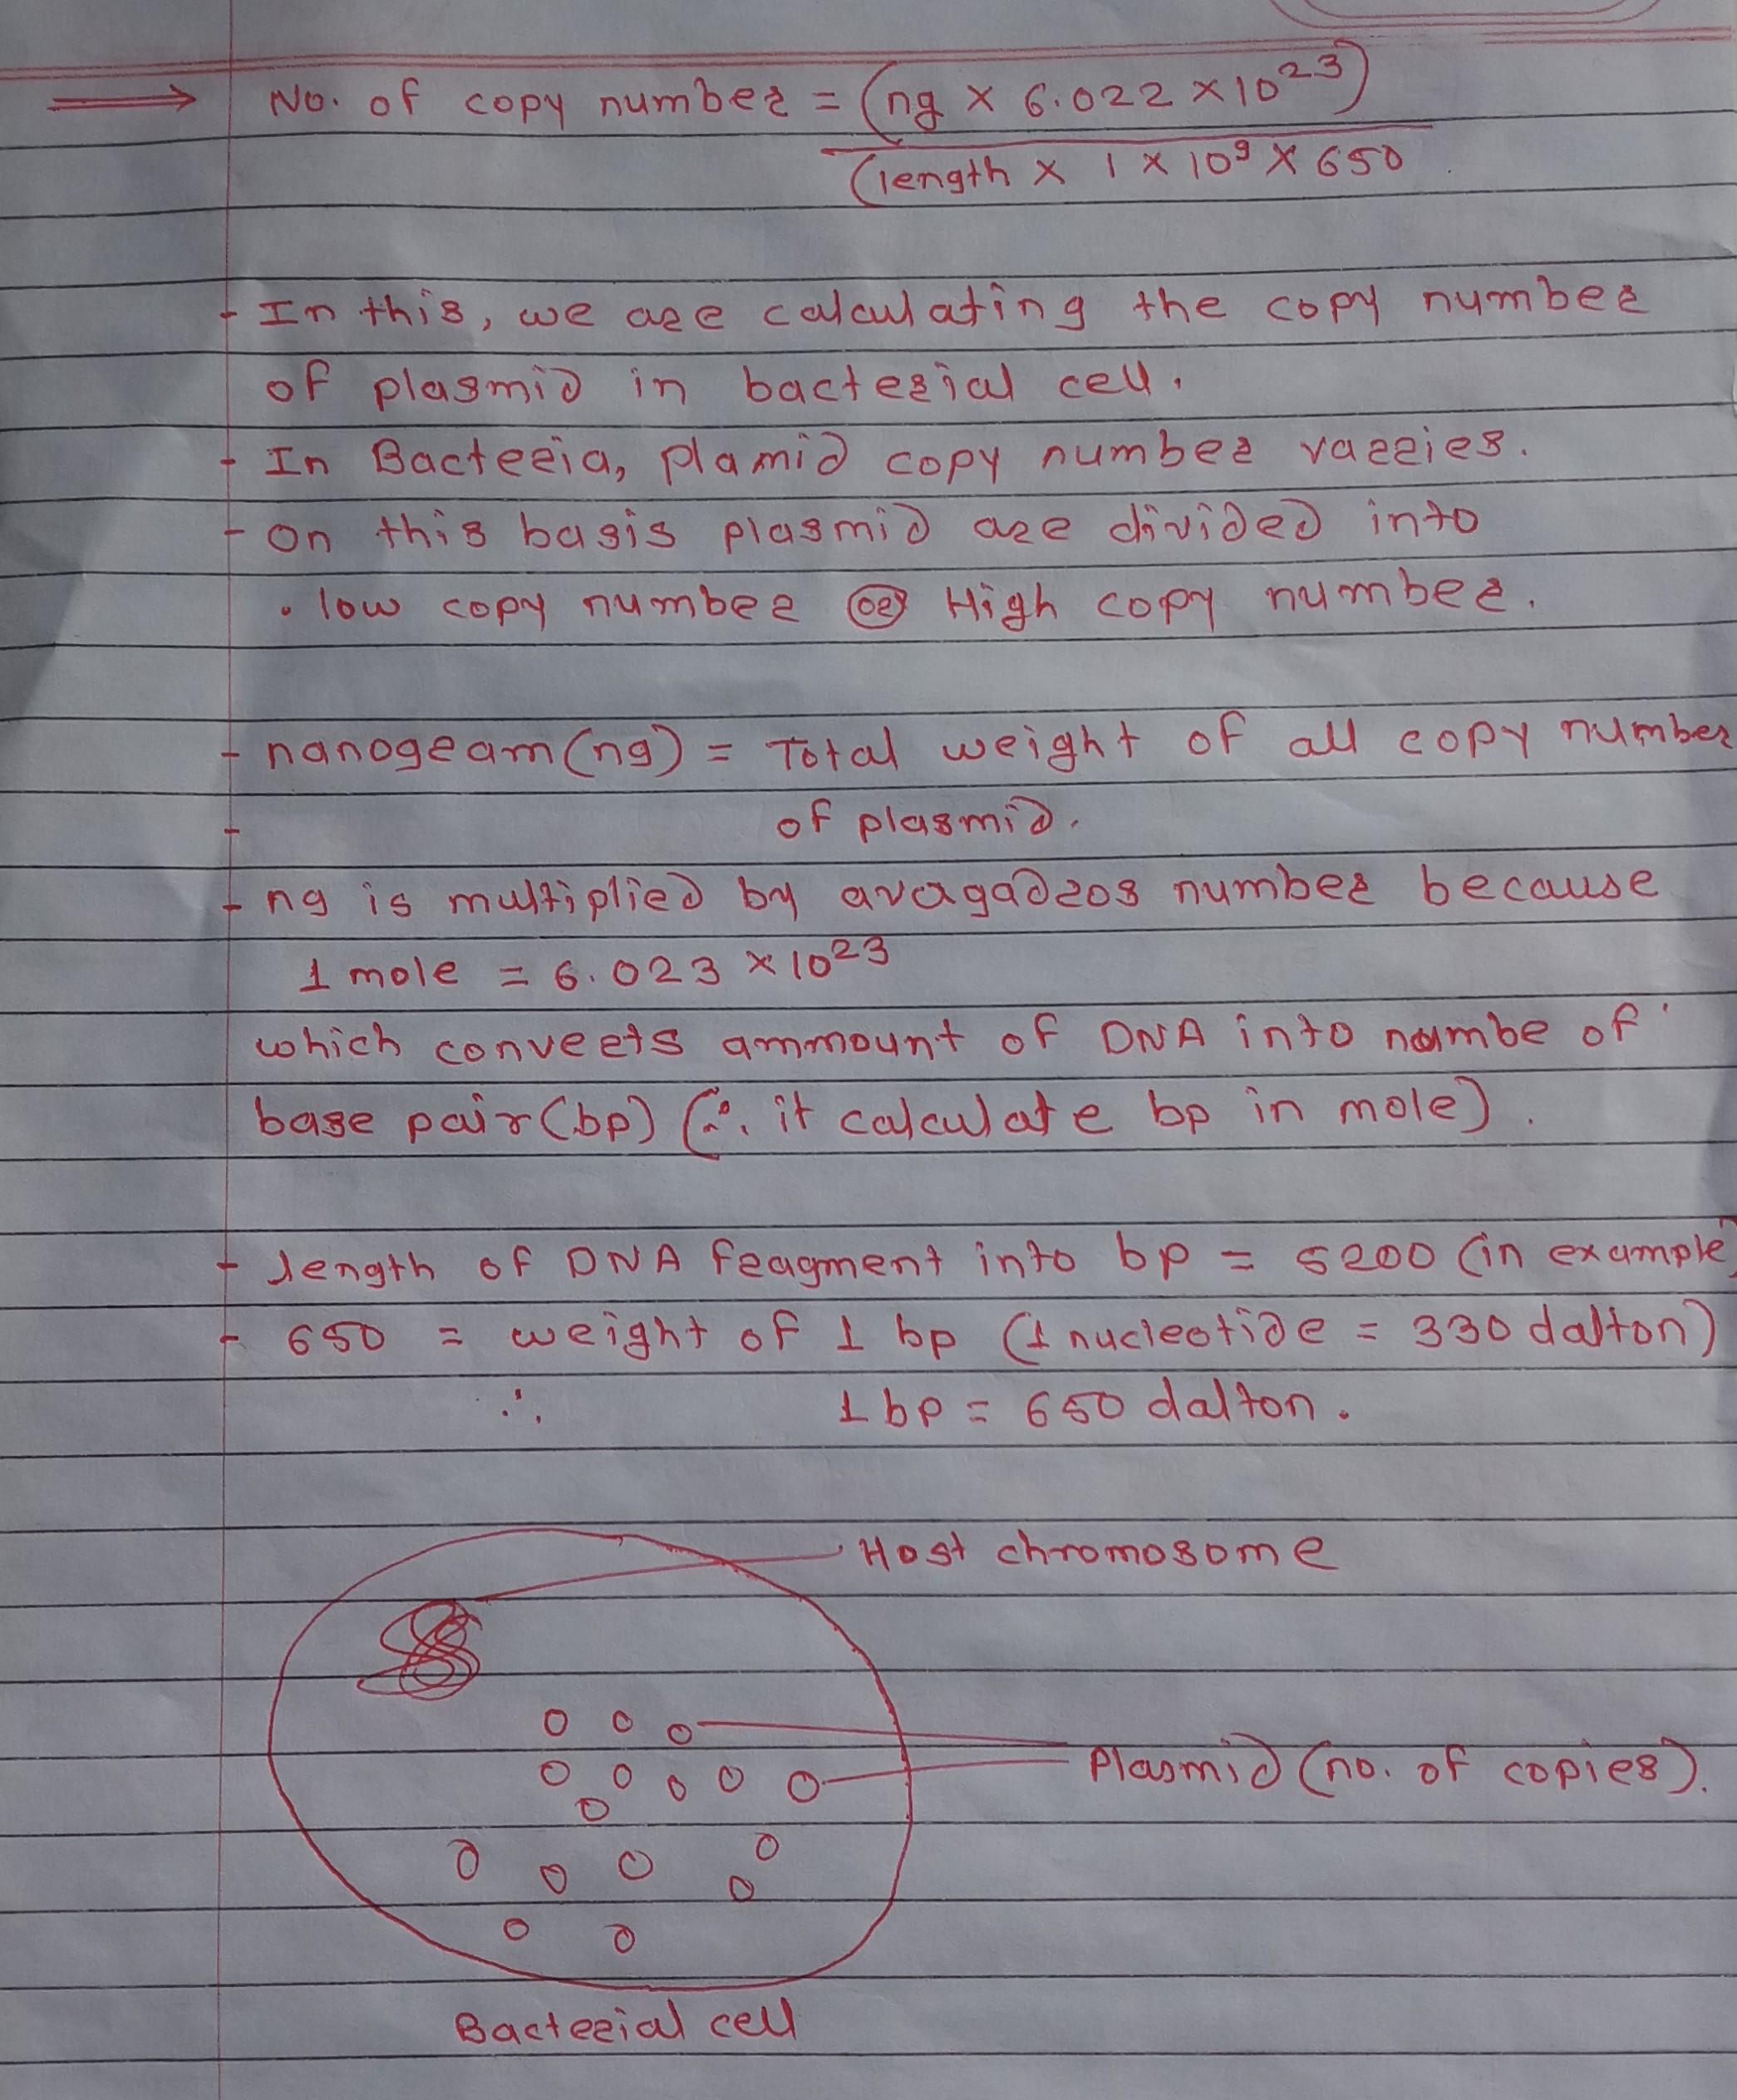 No. of copy number = (ng × 6.022 × 10²³)
(length × 1 × 10⁹ × 650
- In this, we are calculating the copy number
of plasmid in bacterial cell.
- In Bacteria, plamid copy number varries.
- On this basis plasmid are divided into
• low copy number or High copy number.
- nanogram (ng) = Total weight of all copy number
- of plasmid.
- ng is multiplied by avagadros number because
1 mole = 6.023 × 10²³
which converts ammount of DNA into numbe of
base pair (bp) (∴ it calculate bp in mole).
- length of DNA fragment into bp = 5200 (in example)
- 650 = weight of 1 bp (1 nucleotide = 330 dalton)
∴ 1 bp = 650 dalton.
Host chromosome
Plasmid (no. of copies).
Bacterial cell